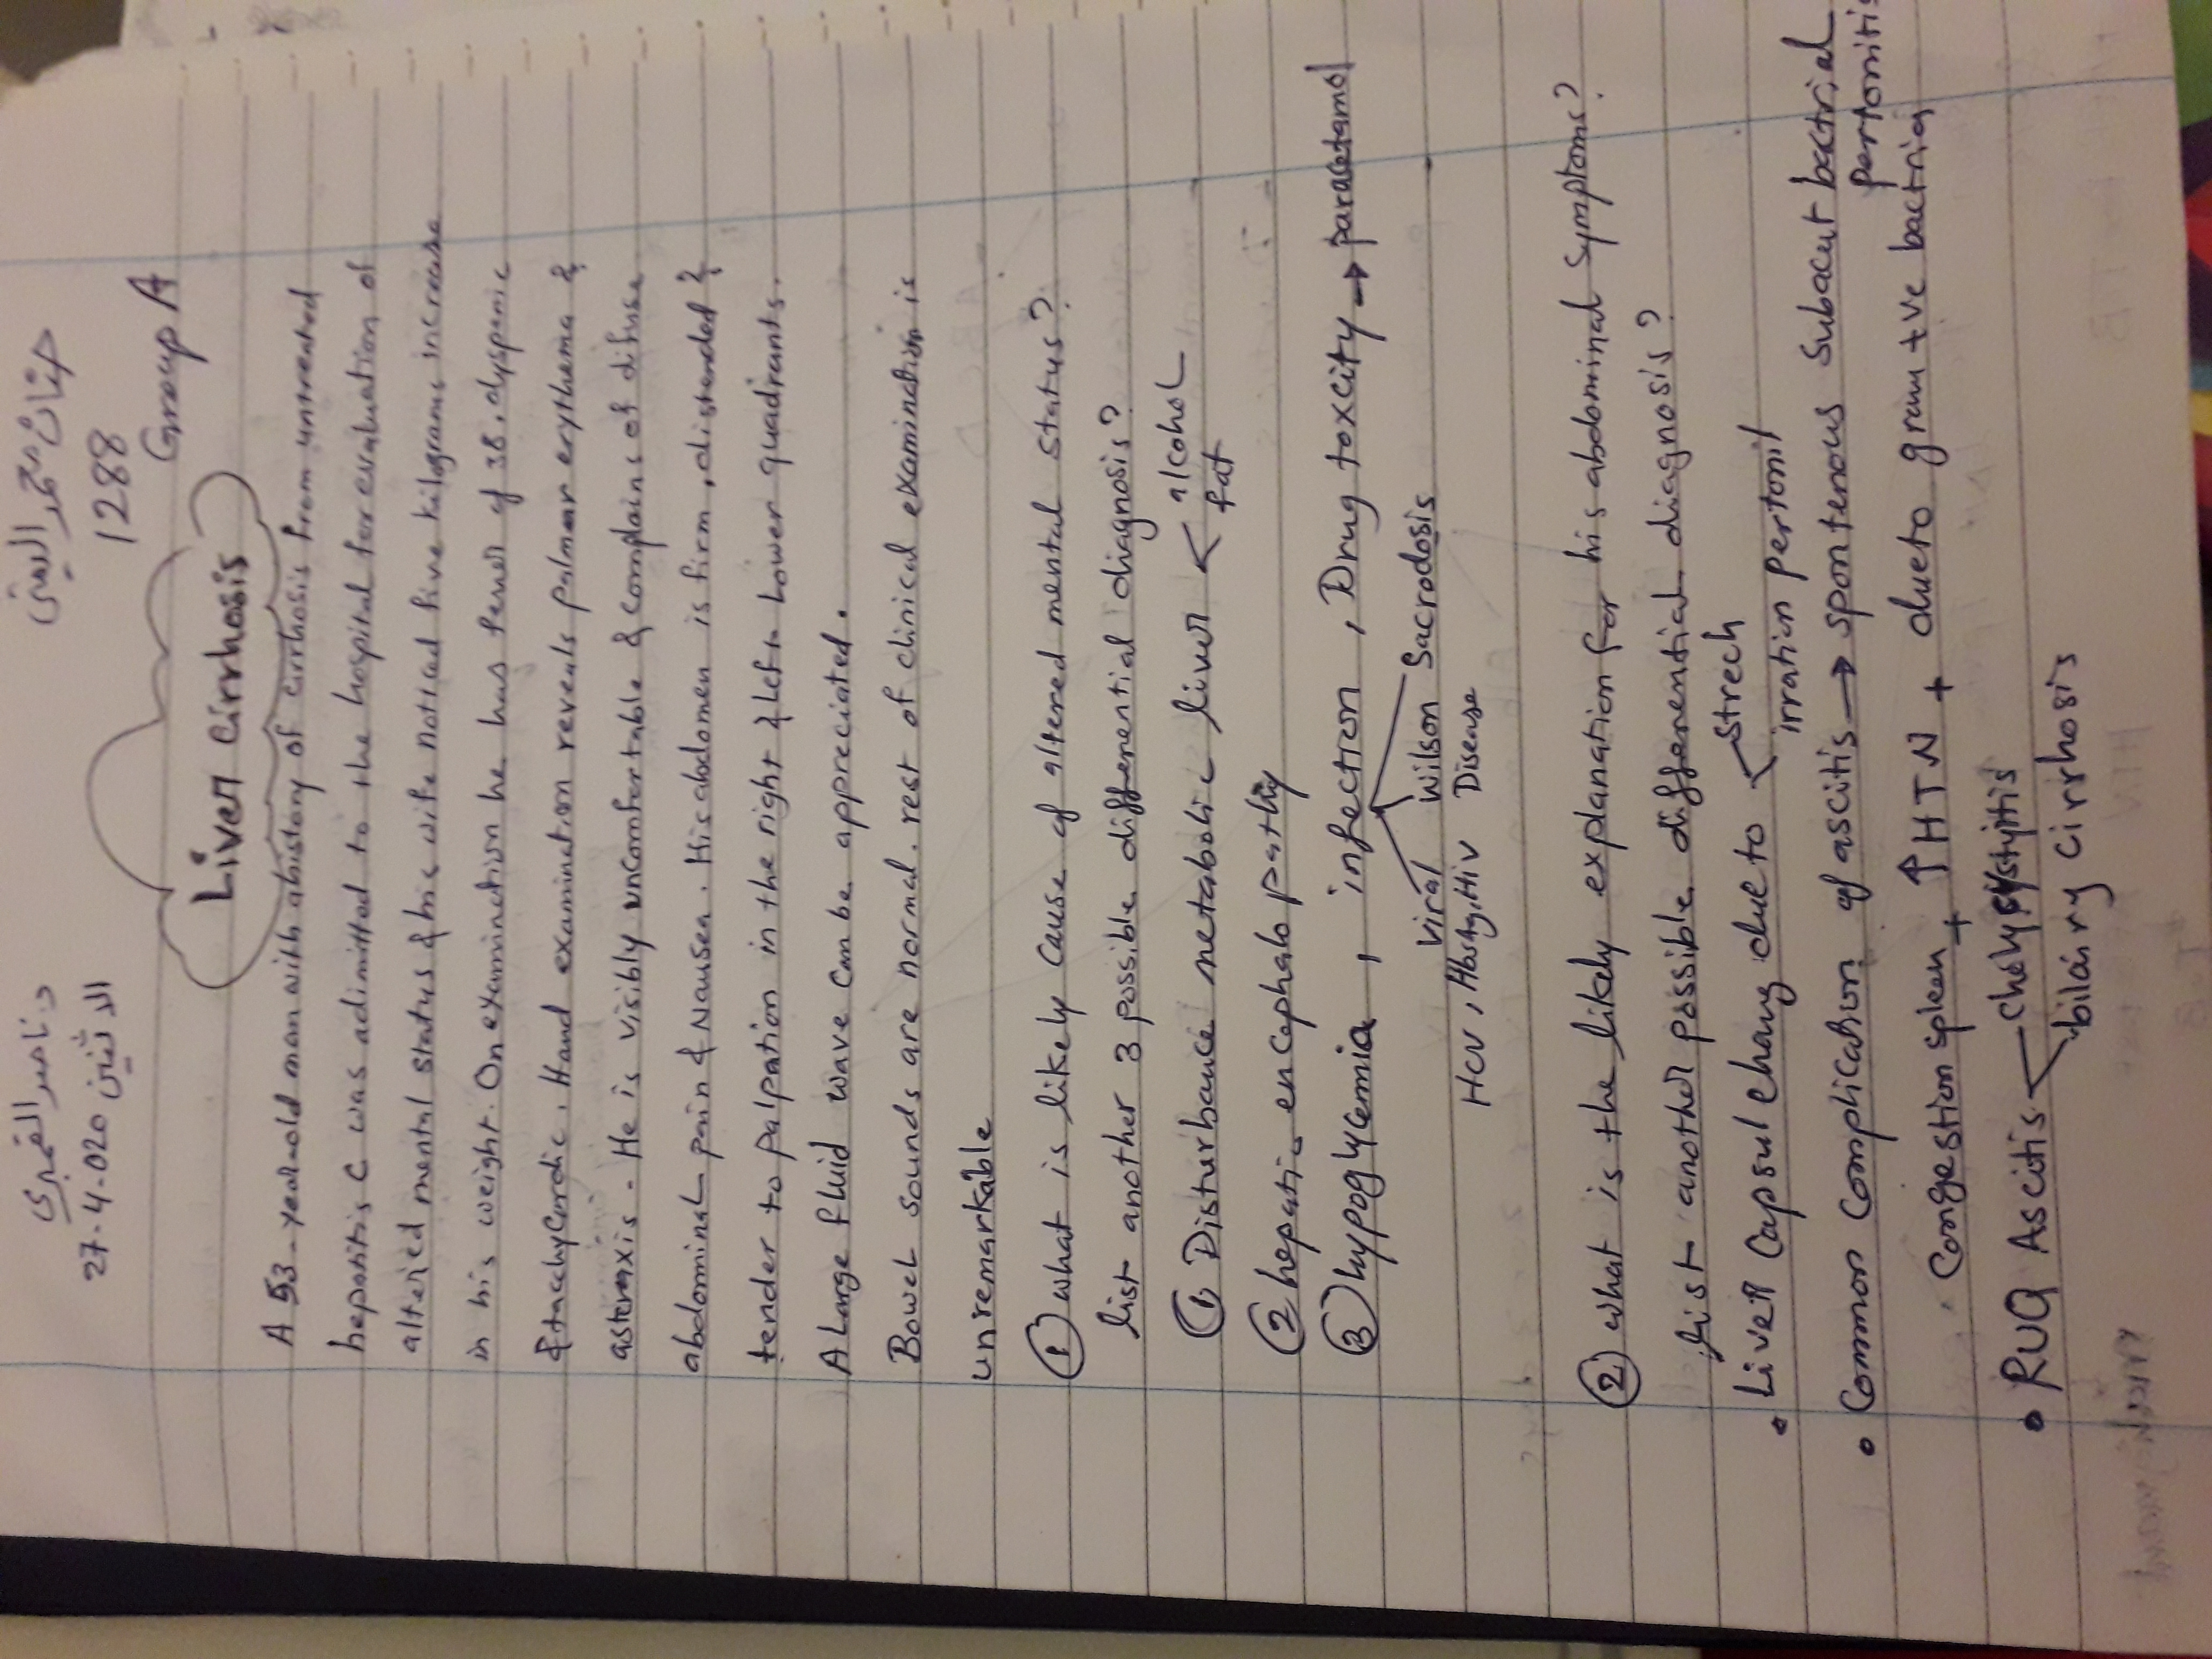 د. ناصر القمري
الاثنين 27-4-020
حنان محمد
1288
Group A
Liver Cirrhosis
A 53-year-old man with ahistory of cirrhosis from untreated
hepatitis C was adimitted to the hospital for evaluation of
altered mental status & his wife noticed five kilograms increase
in his weight. On examination he has fever of 38, dyspenic
& tachycardic. Hand examination reveals palmar erythema &
asterexis. He is visibly uncomfortable & complains of difuse
abdominal pain & Nausea. His abdomen is firm, distended &
tender to palpation in the right & left Lower quadrants.
A Large fluid wave can be appreciated.
Bowel sounds are normal. rest of clinical examination is
unremarkable
① what is likely cause of altered mental status?
list another 3 possible differential diagnosis?
① Disturbance metabolic liver < alcohol
fat
② hepatic encephalopathy
③ hypoglycemia, infection, Drug toxcity → paracetamol
Viral Wilson Sacrodosis
HCV, HbsAg, Hiv Disease
② what is the likely explanation for his abdominal symptoms?
list another possible differential diagnosis?
• Liver Capsul chang due to < strech
irration pertonit
• Common Complication of ascitis → spontenous Subacut bactrial
pertonitis
Congestion spleen + ↑ HTN + dueto gram +ve bactria
• RUQ Ascitis < cholycystyitis
bilairy cirrhosis